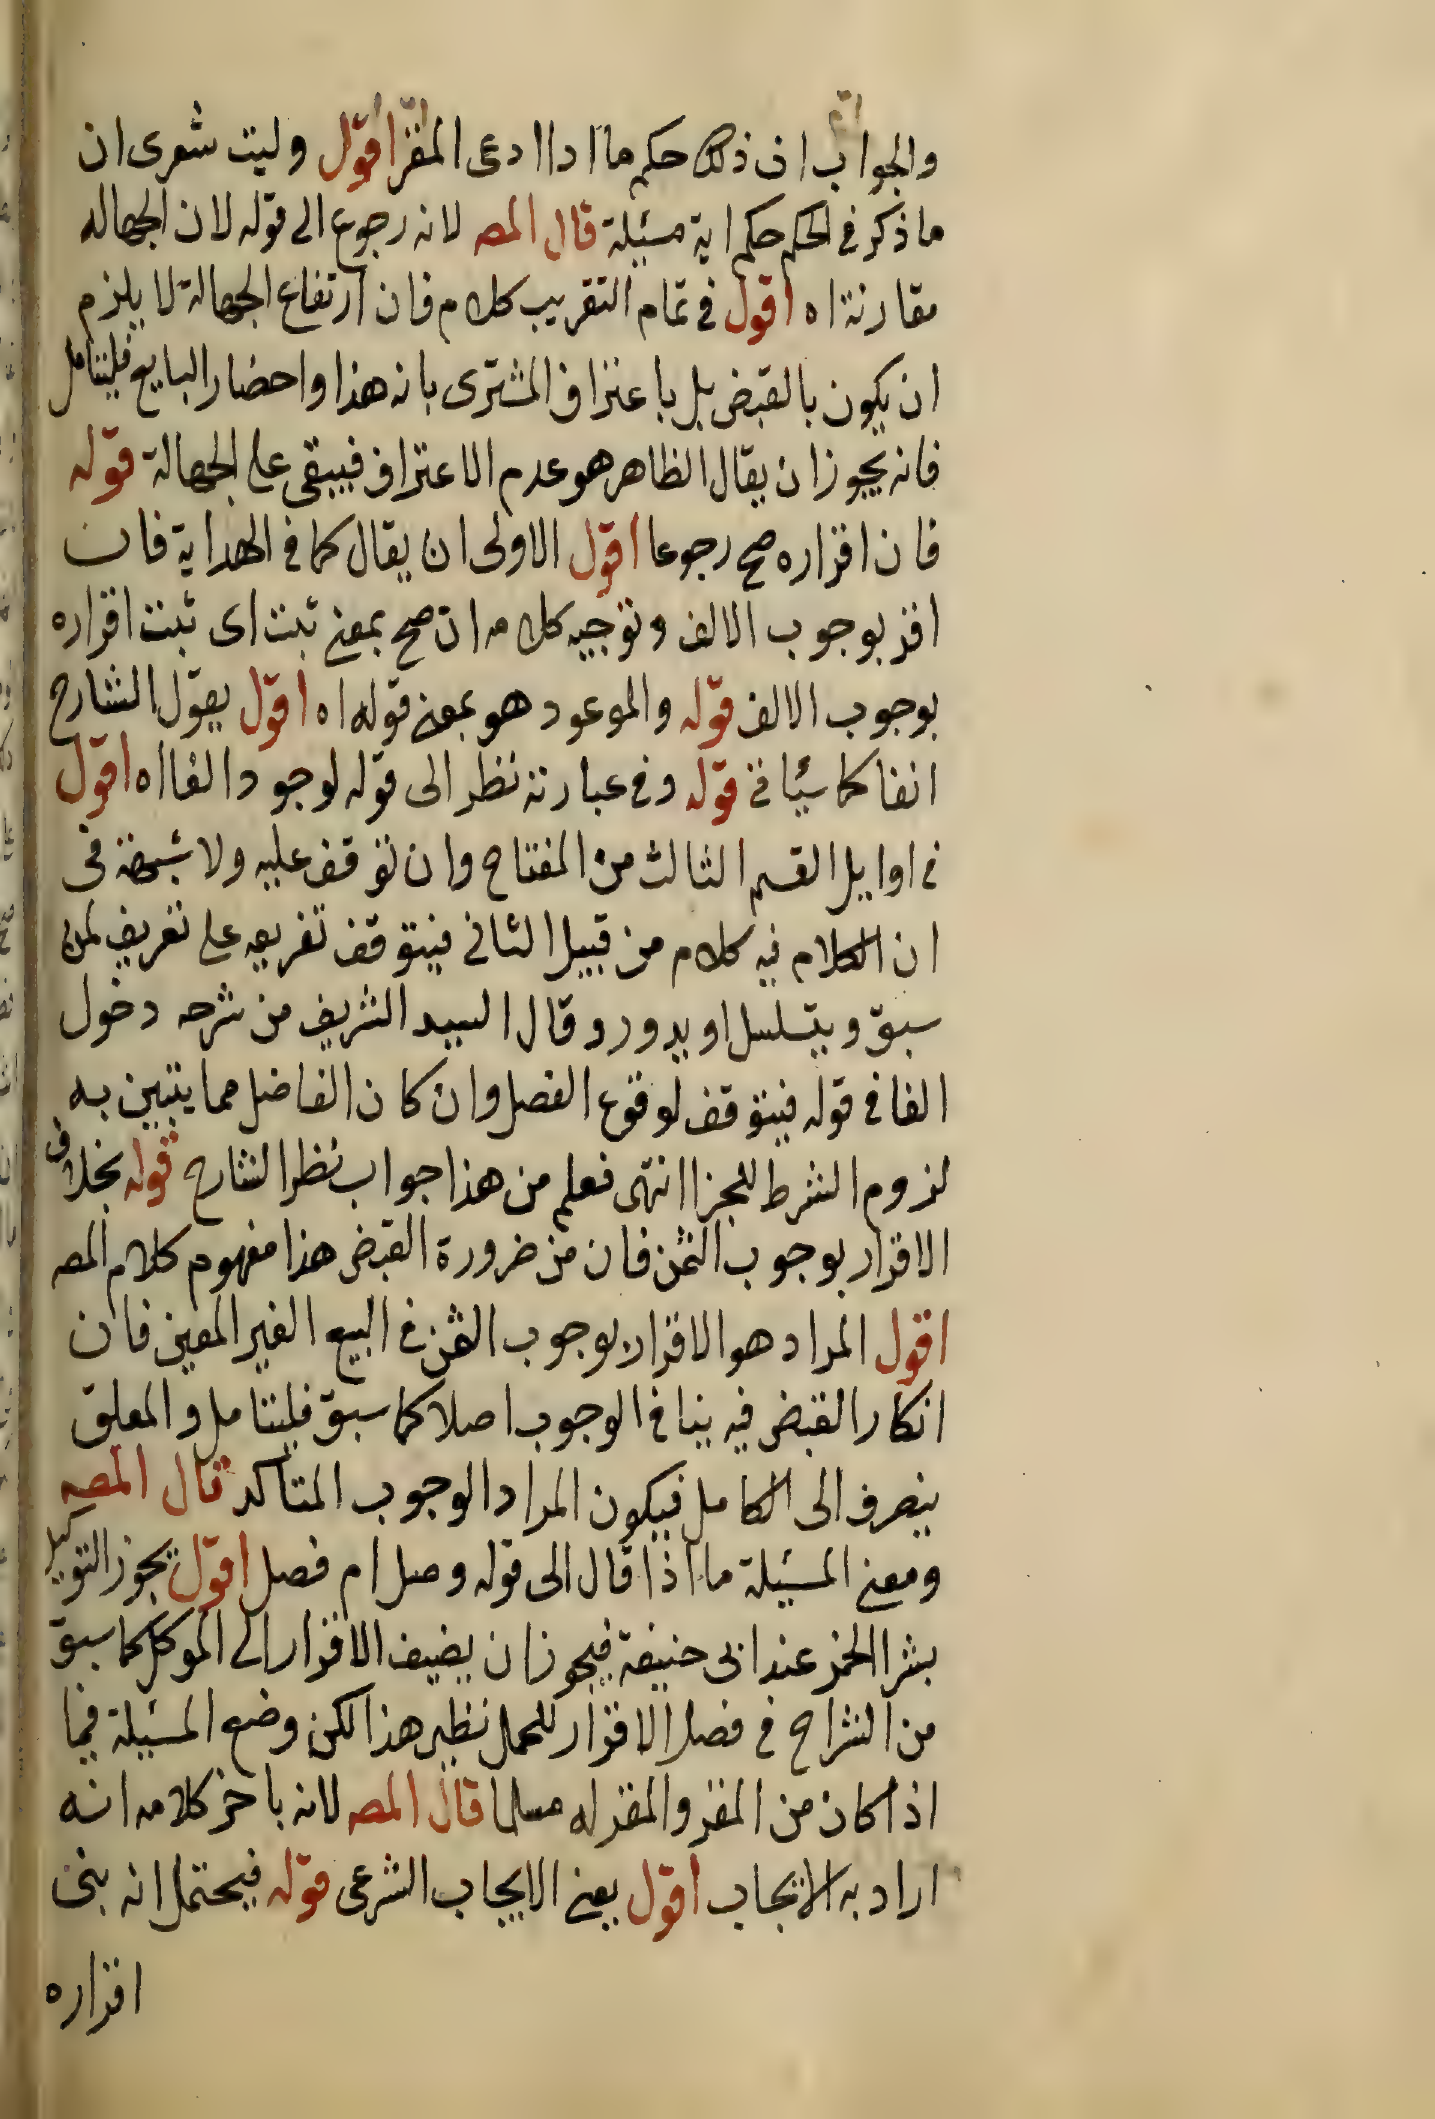 والجواب ان ذلك حكم ما اذا ادعى المقر اقول وليت شعرى ان
ما ذكر فى الحكم حكم اية مسئلة قال المص لانه رجوع الى قوله لان الجهاله
مقارنة اه اقول فى تمام التقريب كلام فان ارتفاع الجهالة لا يلزم
ان يكون بالقبض بل باعتراف المشترى بانه هذا واحضار البايع فليتامل
فانه يجوز ان يقال الظاهر هو عدم الاعتراف فيبقى على الجهالة قوله
فان اقراره صح رجوعا اقول الاولى ان يقال كما فى الهداية فان
اقر بوجوب الالف وتوجيه كلامه ان صح بمعنى ثبت اى ثبت اقراره
بوجوب الالف قوله والموعود هو بمعنى قوله اه اقول يقول الشارح
انفا كما سيأتى قوله وفى عبارته نظر الى قوله لوجود الفا اه اقول
فى اوايل القسم الثالث من المفتاح وان توقف عليه ولا شبهة فى
ان الكلام فيه كلام من قبيل الثانى فيتوقف تفريعه على تعريف لمن
سبق ويتسلسل او يدور وقال السيد الشريف من شرحه دخول
الفا فى قوله فيتوقف لوقوع الفصل وان كان الفاضل مما يتبين به
لزوم الشرط للجزا انتهى فعلم من هذا جواب نظر الشارح قوله بخلاف
الاقرار بوجوب الثمن فان من ضرورة القبض هذا مفهوم كلام المص
اقول المراد هو الاقرار بوجوب الثمن فى البيع الغير المعين فان
انكار القبض فيه ينافى الوجوب اصلا كما سبق فليتامل والمعلق
ينصرف الى الكامل فيكون المراد الوجوب المتاكد قال المص
ومعنى المسئلة ما اذا قال الى قوله وصل ام فصل اقول يجوز التوكيل
بشرا الخمر عند ابى حنيفة فيجوز ان يضيف الاقرار الى الموكل كما سبق
من الشراح فى فصل الاقرار للحمل نظير هذا لكن وضع المسئلة فيما
اذا كان من المقر والمقر له مسلما قال المص لانه باخر كلامه انه
اراد به الايجاب اقول يعنى الايجاب الشرعى قوله فيحتمل انه بنى
اقراره